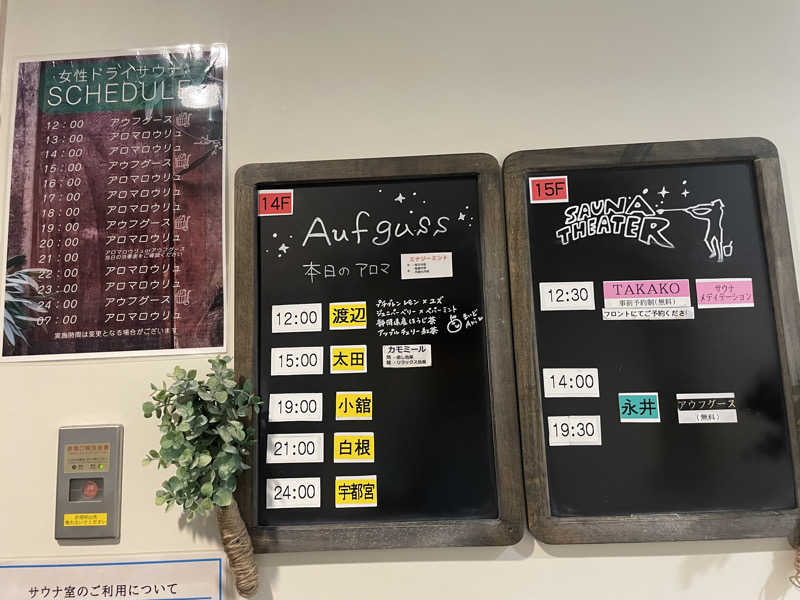 女性ドライサウナ
SCHEDULE
12:00 アウフグース
13:00 アロマロウリュ
14:00 アロマロウリュ
15:00 アウフグース
16:00 アロマロウリュ
17:00 アロマロウリュ
18:00 アロマロウリュ
19:00 アウフグース
20:00 アロマロウリュ
21:00 アロマロウリュorアウフグース
当日の当番表をご確認ください
22:00 アロマロウリュ
23:00 アロマロウリュ
24:00 アウフグース
07:00 アロマロウリュ
実施時間は変更となる場合がございます
14F
Aufguss
本日のアロマ
エナジーミント
12:00 渡辺
レモン×ユズ
ジュニパーベリー×ペパーミント
静岡県産ほうじ茶
アップルチェリー紅茶
15:00 太田
カモミール
19:00 小舘
21:00 白根
24:00 宇都宮
15F
SAUNA
THEATER
12:30 TAKAKO
事前予約制(無料)
フロントにてご予約ください
サウナ
メディテーション
14:00
永井 アウフグース
(無料)
19:30
サウナ室のご利用について